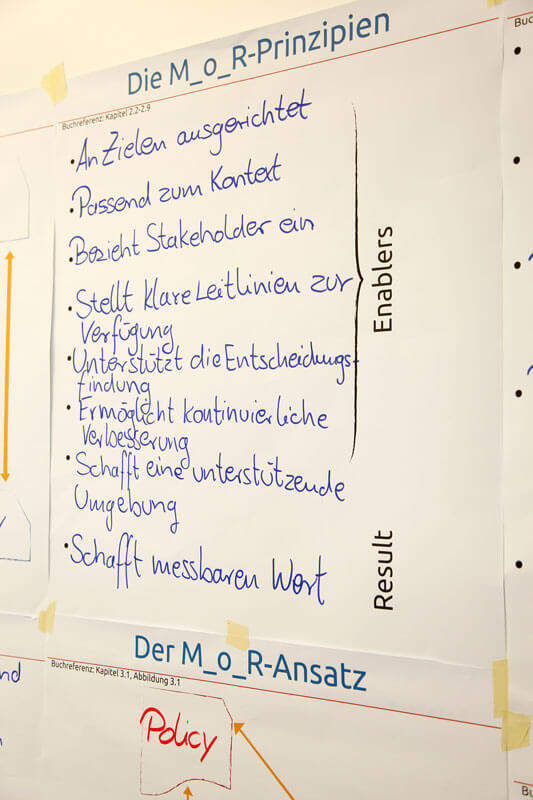 Die M_o_R-Prinzipien
Buchreferenz: Kapitel 2.2-2.9
• An Zielen ausgerichtet
• Passend zum Kontext
• Bezieht Stakeholder ein
• Stellt klare Leitlinien zur
Verfügung
• Unterstützt die Entscheidungs-
findung
• Ermöglicht kontinuierliche
Verbesserung
• Schafft eine unterstützende
Umgebung
• Schafft messbaren Wert
Enablers
Result
Der M_o_R-Ansatz
Buchreferenz: Kapitel 3.1, Abbildung 3.1
Policy
Buchre
nd